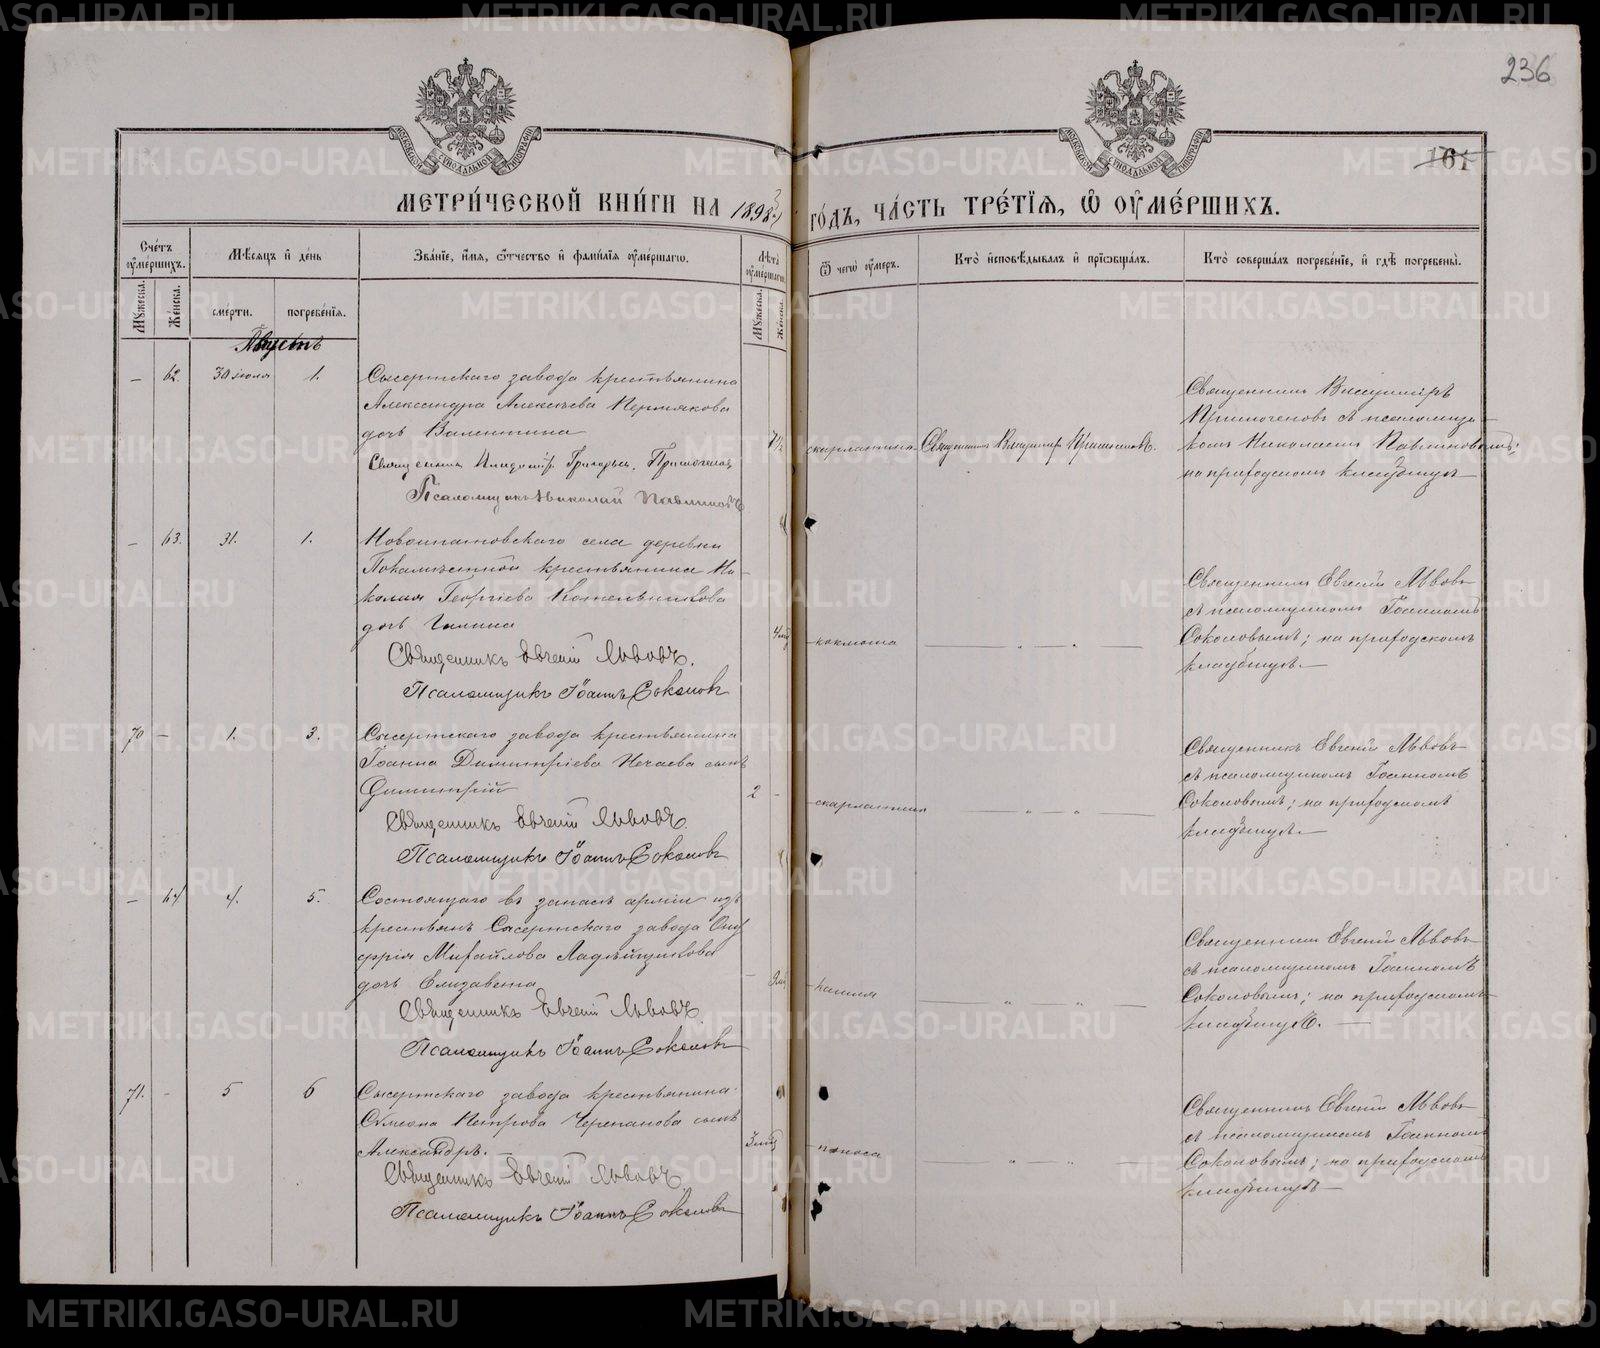 236
161
МОСКОВСКОЙ СѴНОДАЛЬНОЙ ТИПОГРАФІИ
МОСКОВСКОЙ СѴНОДАЛЬНОЙ ТИПОГРАФІИ
МЕТРИ́ЧЕСКОЙ КНИ́ГИ НА 1898 ГО́ДЪ, ЧА́СТЬ ТРЕ́ТІѦ, Ѽ ОУ҆МЕ́РШИХЪ.
Сче́тъ оу҆ме́ршихъ.
Мꙋжеска.
Же́нска.
Мѣ́сяцъ и҆ де́нь
сме́рти.
погребе́нїѧ.
Зва́нїе, и҆́мѧ, ѻ҆́тчество и҆ фами́лїѧ оу҆ме́ршагѡ.
Лѣ́та оу҆ме́ршагѡ
Мꙋжеска.
Же́нска.
Ѿ чегѡ̀ оу҆́меръ.
Кто̀ и҆сповѣ́дывалъ и҆ прїѡбща́лъ.
Кто̀ соверша́лъ погребе́нїе, и҆ гдѣ̀ погребены̀.
Августъ
— 62. 30 июля 1.
Сысертскаго завода крестьянина
Александра Алексѣева Пермякова
дочь Валентина
Священникъ Владимір Григорьев.
Псаломщикъ Николай Павлиновъ
скарлатина
Священникъ Владимір
Священникъ Владиміръ
съ псаломщи-
комъ Николаемъ Павлиновымъ;
на приходскомъ кладбищѣ
— 63. 31. 1.
Новоипатовскаго села деревни
крестьянина Ни-
колая Георгіева Кожевникова
дочь Галина
Священникъ Евгеній Львовъ.
Псаломщикъ Іоаннъ Соколовъ
4 мѣ
— „ — „ —
Священникъ Евгеній Львовъ
съ псаломщикомъ Іоанномъ
Соколовымъ; на приходскомъ
кладбищѣ. —
70 — 1. 3.
Сысертскаго завода крестьянина
Іоанна Димитріева Нечаева сынъ
Димитрій
Священникъ Евгеній Львовъ.
Псаломщикъ Іоаннъ Соколовъ
2 -
скарлатина
— „ — „ —
Священникъ Евгеній Львовъ
съ псаломщикомъ Іоанномъ
Соколовымъ; на приходскомъ
кладбищѣ. —
— 64 4. 5.
Состоящаго въ запасѣ арміи изъ
крестьянъ Сысертскаго завода Ону
фрія Михайлова Ладейщикова
дочь Елизавета
Священникъ Евгеній Львовъ.
Псаломщикъ Іоаннъ Соколовъ
кашля
— „ — „ —
Священникъ Евгеній Львовъ
съ псаломщикомъ Іоанномъ
Соколовымъ; на приходскомъ
кладбищѣ. —
71. - 5 6
Сысертскаго завода крестьянина
Симеона Петрова Черепанова сынъ
Александръ.
Священникъ Евгеній Львовъ.
Псаломщикъ Іоаннъ Соколовъ
3 мѣ
поноса
— „ — „ —
Священникъ Евгеній Львовъ
съ псаломщикомъ Іоанномъ
Соколовымъ; на приходскомъ
кладбищѣ —
METRIKI.GASO-URAL.RU